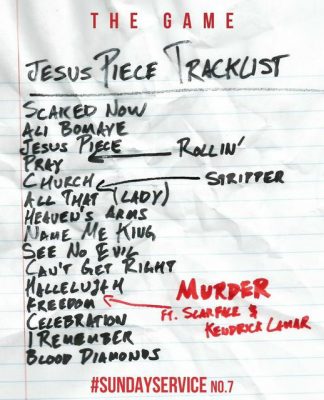 THE GAME
JESUS PIECE TRACKLIST
SCARED NOW
ALI BOMAYE
JESUS PIECE
PRAY
ROLLIN'
CHURCH
STRIPPER
ALL THAT (LADY)
HEAVEN'S ARMS
NAME ME KING
SEE NO EVIL
CAN'T GET RIGHT
HALLELUJAH
FREEDOM
MURDER
FT. SCARFACE &
KENDRICK LAMAR
CELEBRATION
I REMEMBER
BLOOD DIAMONDS
#SUNDAYSERVICE NO.7